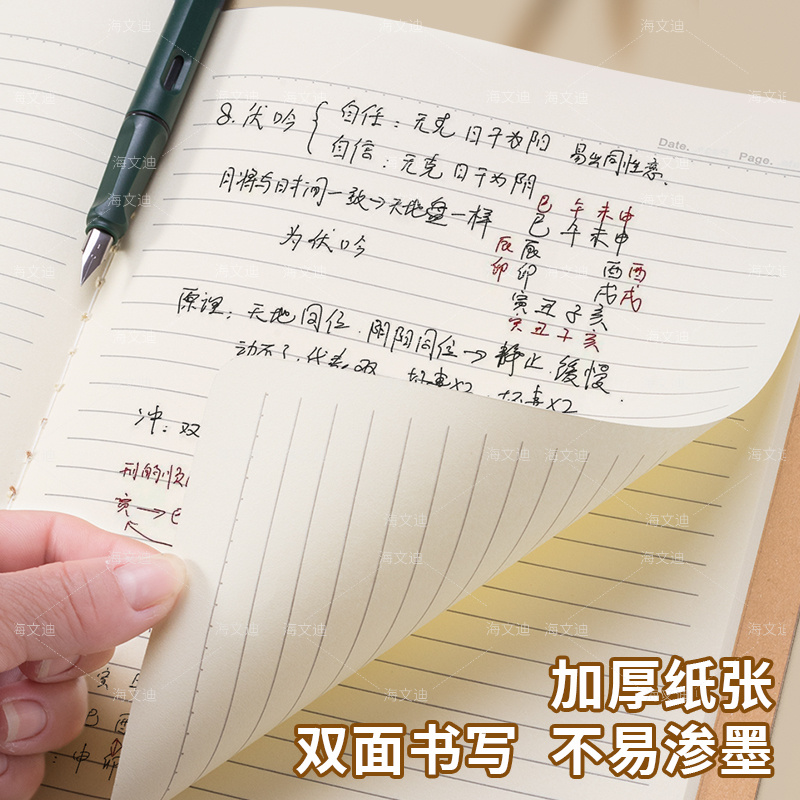 Date.
Page.
8. 伏吟 { 自任：元克 日干为阳 易出同性恋.
自信：元克 日干为阴
月将与日时间一致→天地盘一样
为伏吟
巳 午 未 申
巳 午 未 申
辰 辰 酉 酉
卯 卯 戌 戌
寅 丑 子 亥
寅 丑 子 亥
原理：天地同位．阴阳同位→静止．缓慢．
动不了．代表双 X2 X2
冲：双
刑的
亥→巳
加厚纸张
双面书写 不易渗墨
海文迪